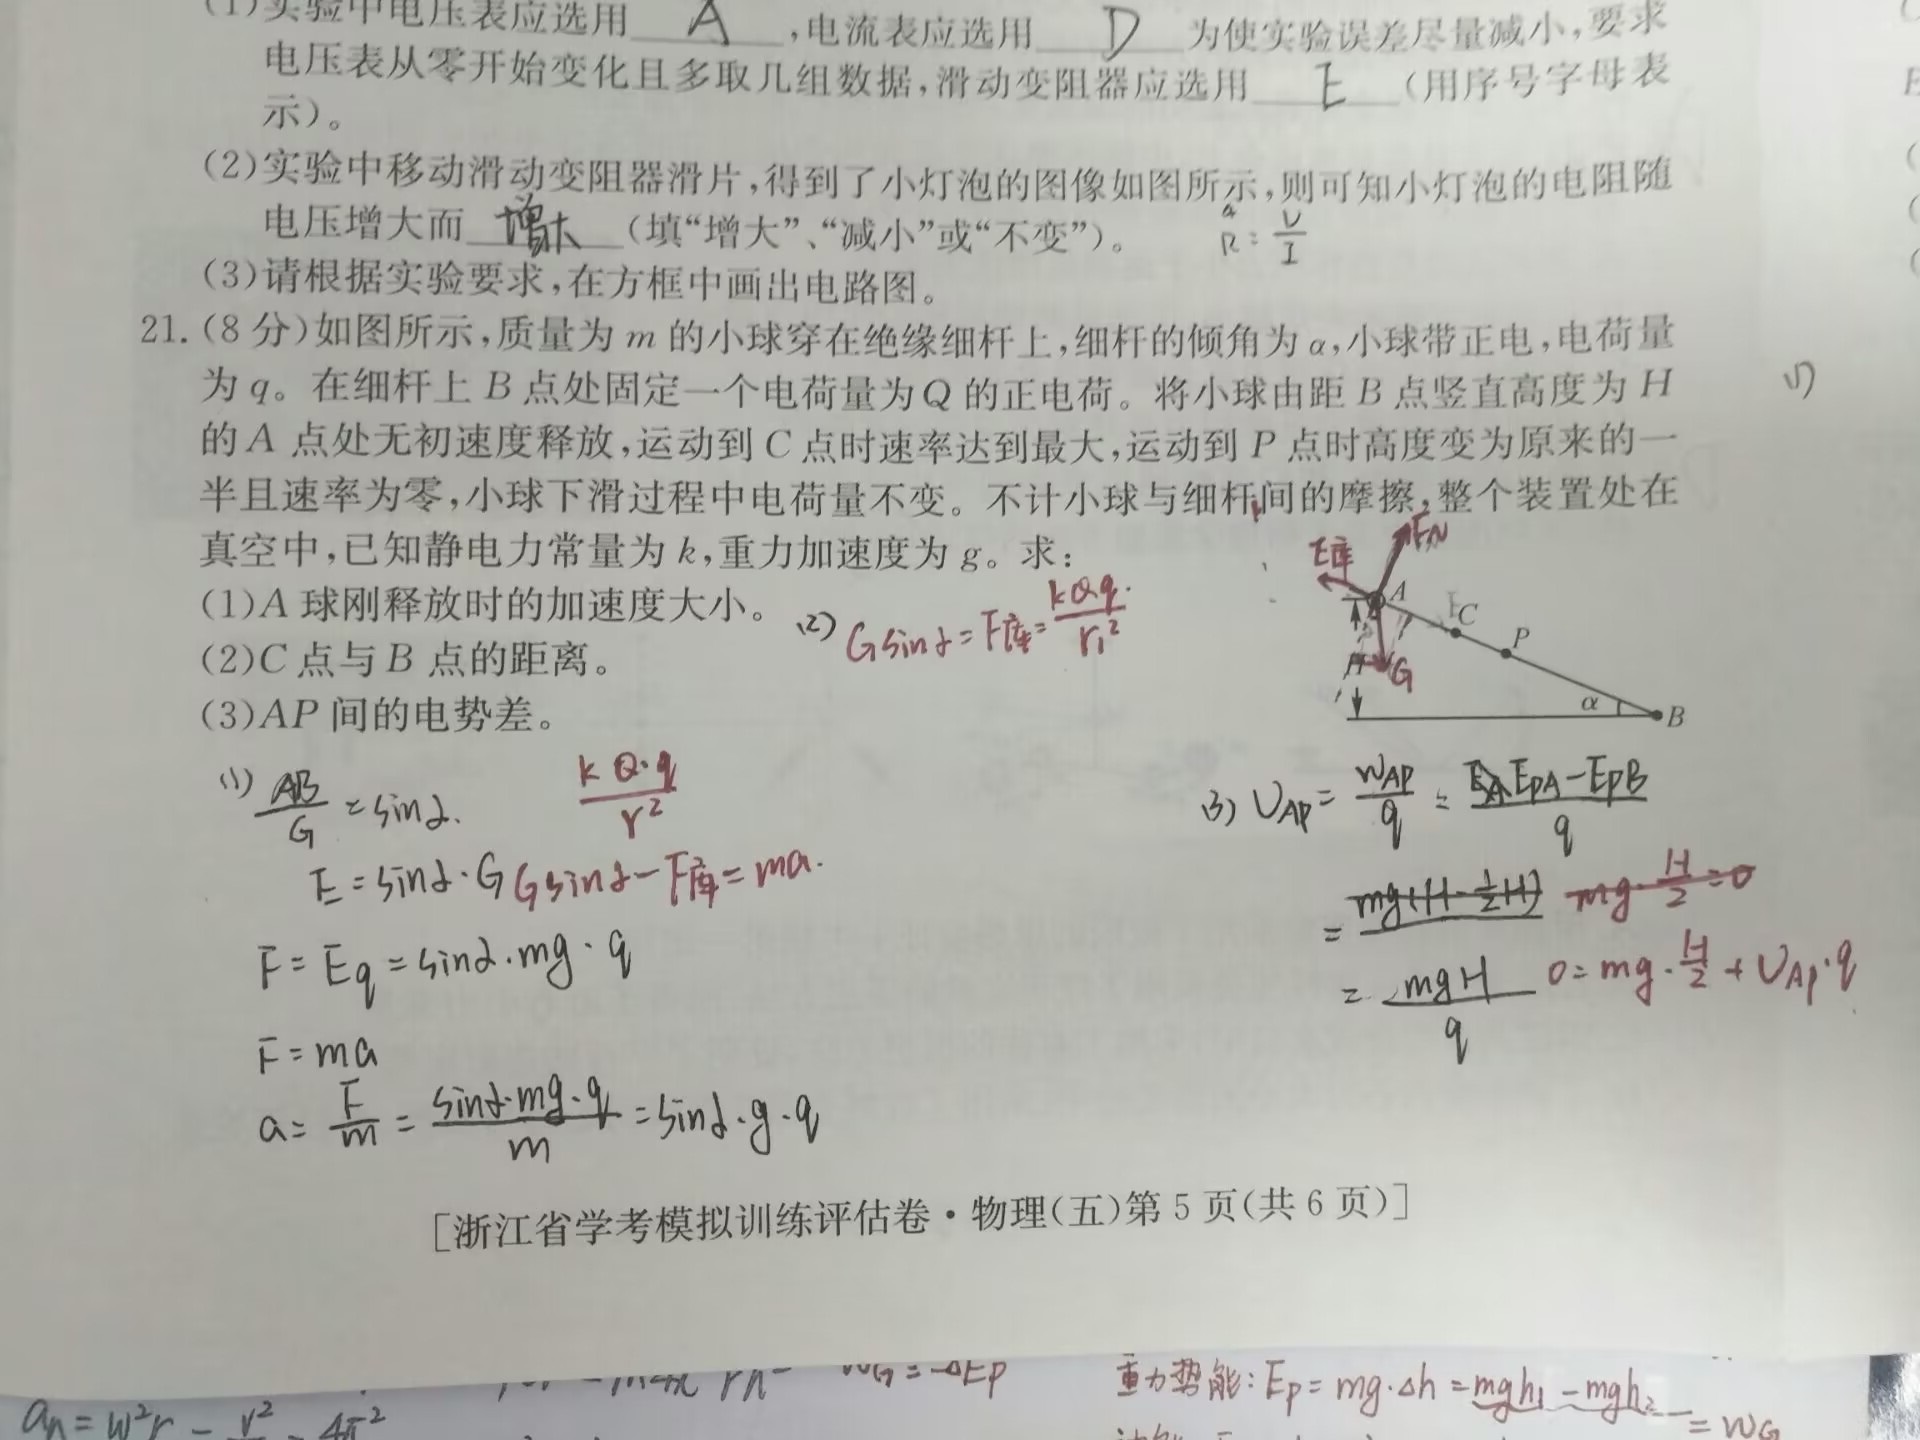 (1)实验中电压表应选用 A ,电流表应选用 D 为使实验误差尽量减小,要求
电压表从零开始变化且多取几组数据,滑动变阻器应选用 E (用序号字母表
示)。
(2)实验中移动滑动变阻器滑片,得到了小灯泡的图像如图所示,则可知小灯泡的电阻随
电压增大而 增大 (填“增大”、“减小”或“不变”)。
R = U/I
(3)请根据实验要求,在方框中画出电路图。
21.(8分)如图所示,质量为 m 的小球穿在绝缘细杆上,细杆的倾角为 α,小球带正电,电荷量
为 q。在细杆上 B 点处固定一个电荷量为Q 的正电荷。将小球由距 B 点竖直高度为 H
的 A 点处无初速度释放,运动到 C 点时速率达到最大,运动到 P 点时高度变为原来的一
半且速率为零,小球下滑过程中电荷量不变。不计小球与细杆间的摩擦,整个装置处在
真空中,已知静电力常量为 k,重力加速度为 g。求:
(1)A 球刚释放时的加速度大小。
(2)C 点与 B 点的距离。
(3)AP 间的电势差。
(2) Gsinα = F库 = kQq/r₁²
F库 FN
A C P
H G
α B
(1) AB/G = sinα.
kQ·q/r²
E = sinα·G Gsinα - F库 = ma.
F = Eq = sinα·mg·q
F = ma
a = F/m = sinα·mg·q/m = sinα·g·q
(3) UAP = WAP/q = EPA-EPB/q
= mg(H-½H) mg·H/2=0
= mgH/q 0 = mg·H/2 + UAP·q
[浙江省学考模拟训练评估卷·物理(五)第 5 页(共 6 页)]
WG = -ΔEp
重力势能: Ep = mg·Δh = mgh₁ - mgh₂ = WG
an = w²r = v²
4π²